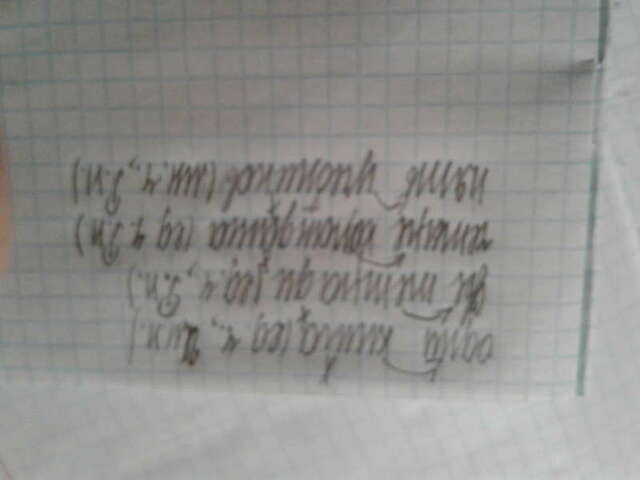 одна книга (ед. ч., И.п.)
две тетради (ед. ч., Р.п.)
четыре карандаша (ед. ч. Р.п)
пять учеников (мн. ч., Р.п.)